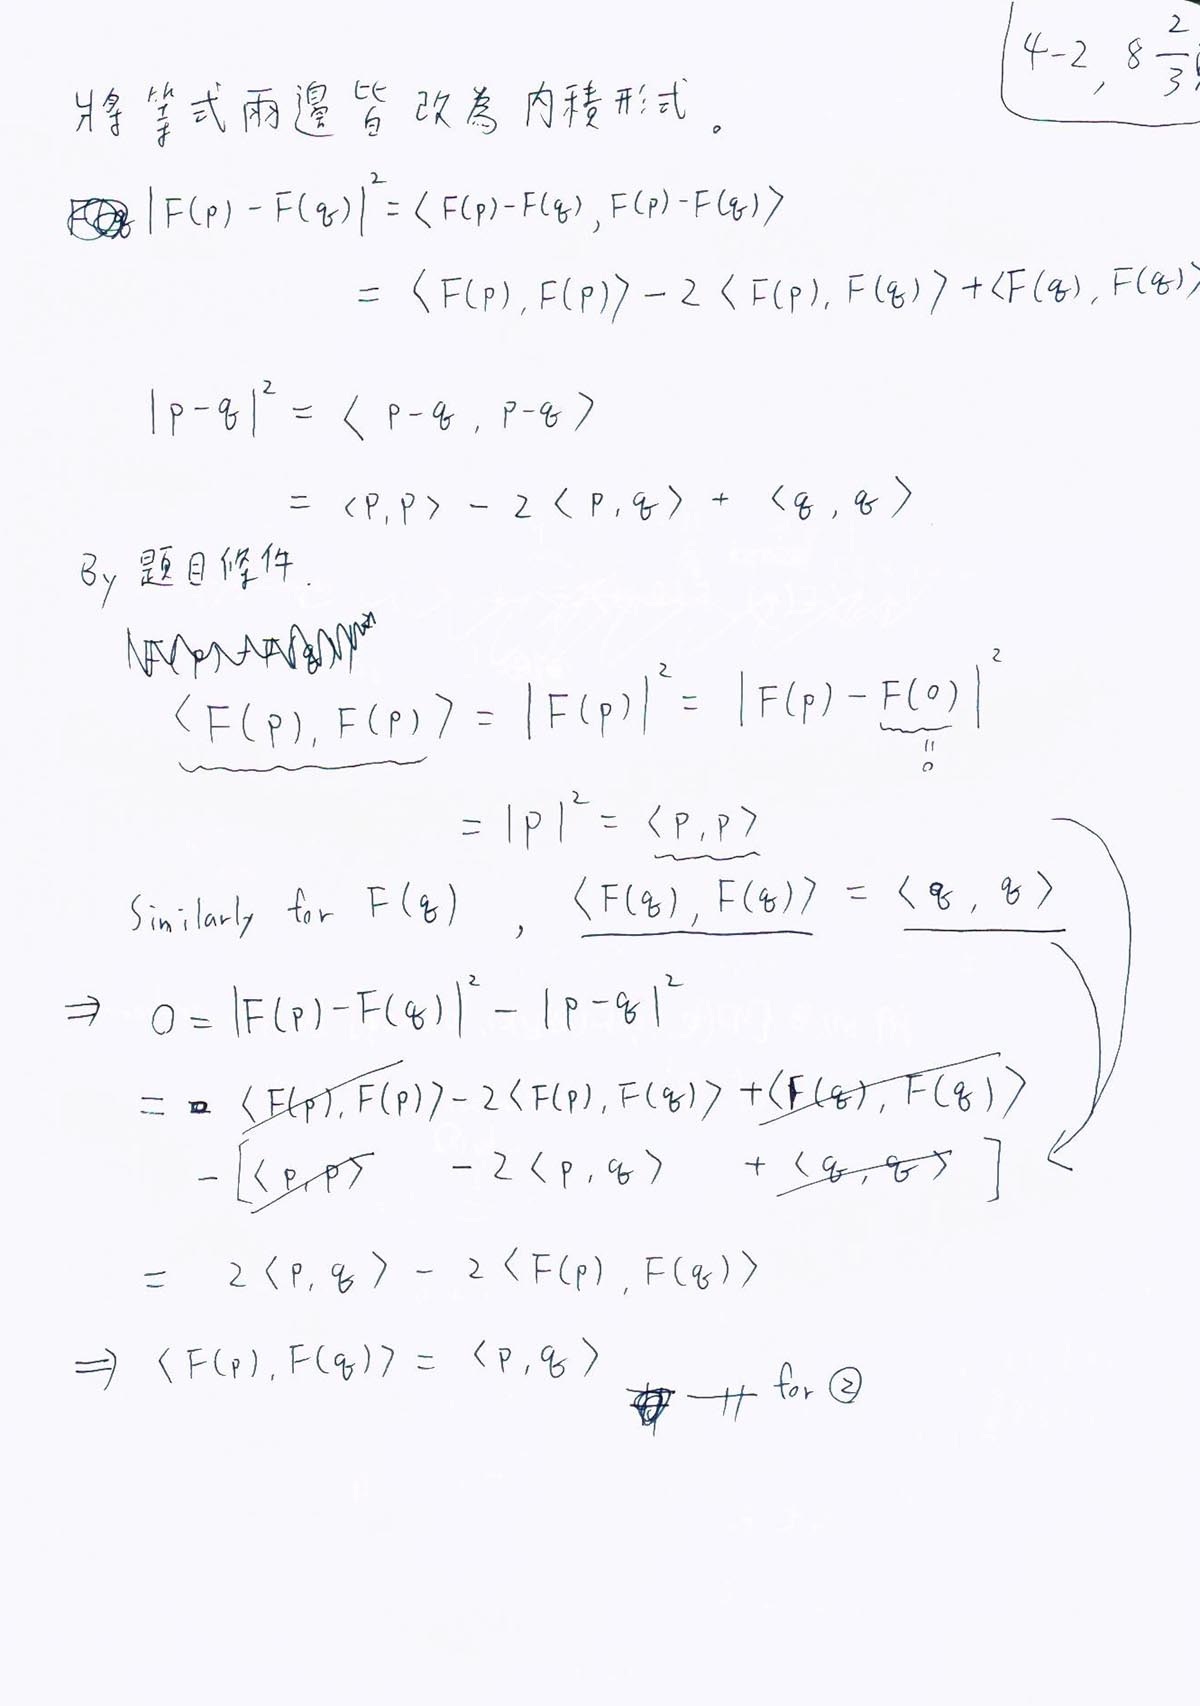 4-2, 8 2/3
將等式兩邊皆改為內積形式。
|F(p)-F(q)|² = ⟨F(p)-F(q), F(p)-F(q)⟩
= ⟨F(p), F(p)⟩ - 2⟨F(p), F(q)⟩ + ⟨F(q), F(q)⟩
|p-q|² = ⟨p-q, p-q⟩
= ⟨p,p⟩ - 2⟨p,q⟩ + ⟨q,q⟩
By 題目條件.
⟨F(p), F(p)⟩ = |F(p)|² = |F(p)-F(0)|²
"
0
= |p|² = ⟨p,p⟩
Similarly for F(q), ⟨F(q), F(q)⟩ = ⟨q,q⟩
⇒ 0 = |F(p)-F(q)|² - |p-q|²
= ⟨F(p), F(p)⟩ - 2⟨F(p), F(q)⟩ + ⟨F(q), F(q)⟩
- [⟨p,p⟩ - 2⟨p,q⟩ + ⟨q,q⟩]
= 2⟨p,q⟩ - 2⟨F(p), F(q)⟩
⇒ ⟨F(p), F(q)⟩ = ⟨p,q⟩
for ②